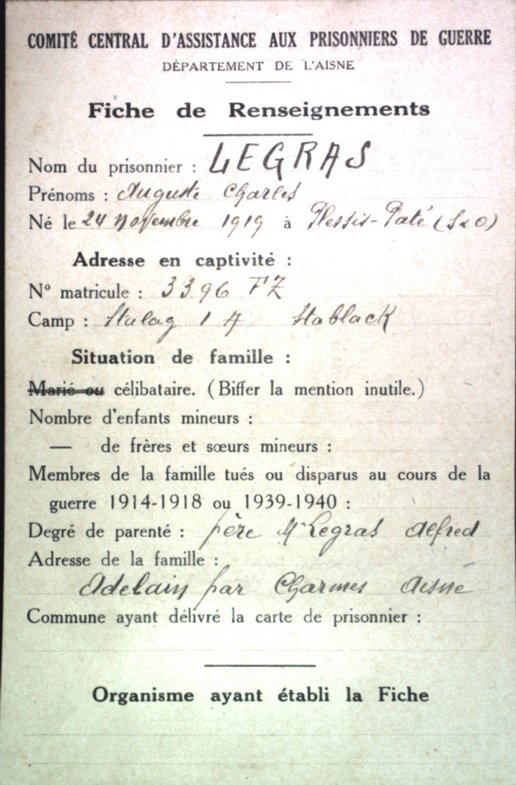 COMITÉ CENTRAL D'ASSISTANCE AUX PRISONNIERS DE GUERRE
DÉPARTEMENT DE L'AISNE
Fiche de Renseignements
Nom du prisonnier : LEGRAS
Prénoms : Auguste Charles
Né le 24 novembre 1919 à Plessis-Paté (S&O)
Adresse en captivité :
N° matricule : 3396 FZ
Camp : Stalag 1 A Stablack
Situation de famille :
Marié ou célibataire. (Biffer la mention inutile.)
Nombre d'enfants mineurs :
— de frères et sœurs mineurs :
Membres de la famille tués ou disparus au cours de la
guerre 1914-1918 ou 1939-1940 :
Degré de parenté : père Mr Legras Alfred
Adresse de la famille :
Adelain par Charmes Aisne
Commune ayant délivré la carte de prisonnier :
Organisme ayant établi la Fiche